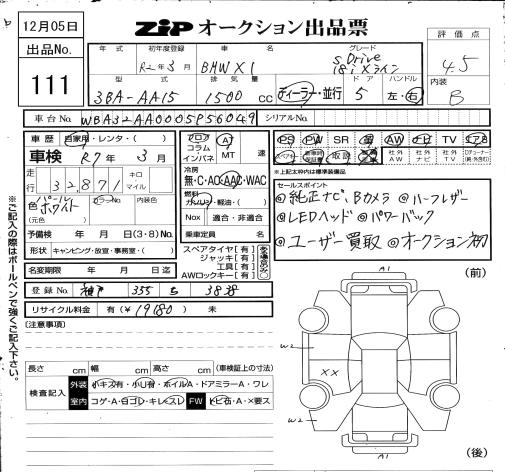 12月05日
ZIP オークション出品票
出品No.
111
評価点
4.5
内装
B
年式 初年度登録 車名 グレード
R2年3月 BMW X1 sDrive
18i Xライン
型式 排気量 ドア ハンドル
3BA-AA15 1500 cc ディーラー・並行 5 左・右
車台No. WBA32AA0005P56049 シリアルNo.
車歴 自家用・レンタ・( )
車検 R7年3月
走行 32,871 キロ マイル
色 パールホワイト カラーNo. 内装色
(元色)
予備検 年 月 日(3・8)No.
形状 キャンピング・放宣・事務室・( )
名変期限 年 月 日迄
フロア コラム インパネ
AT MT 速
冷房
無・C・AC・AAC・WAC
燃料
ガソリン・軽油・( )
Nox 適合・非適合
乗車定員 名
スペアタイヤ[有]
ジャッキ[有]
工具[有]
AWロックキー[有]
PS PW SR AW ナビ TV
取説
社外AW 社外ナビ 社外TV
※上記太枠内は標準装備品
セールスポイント
◎純正ナビ、Bカメラ ◎ハーフレザー
◎LEDヘッド ◎パワーバック
◎ユーザー買取 ◎オークション初
登録No. 355 ち 3838
リサイクル料金 有(¥19180) 未
(注意事項)
長さ cm 幅 cm 高さ cm (車検証上の寸法)
検査記入 外装 小キズ有・小凹有・ホイルA・ドアミラーA・ワレ
室内 コゲ・A・白ゴレ・キレ・スレ FW トビ石・A・×要ス
※ご記入の際はボールペンで強くご記入下さい。
(前)
A1
W2
××
W2
A1
(後)